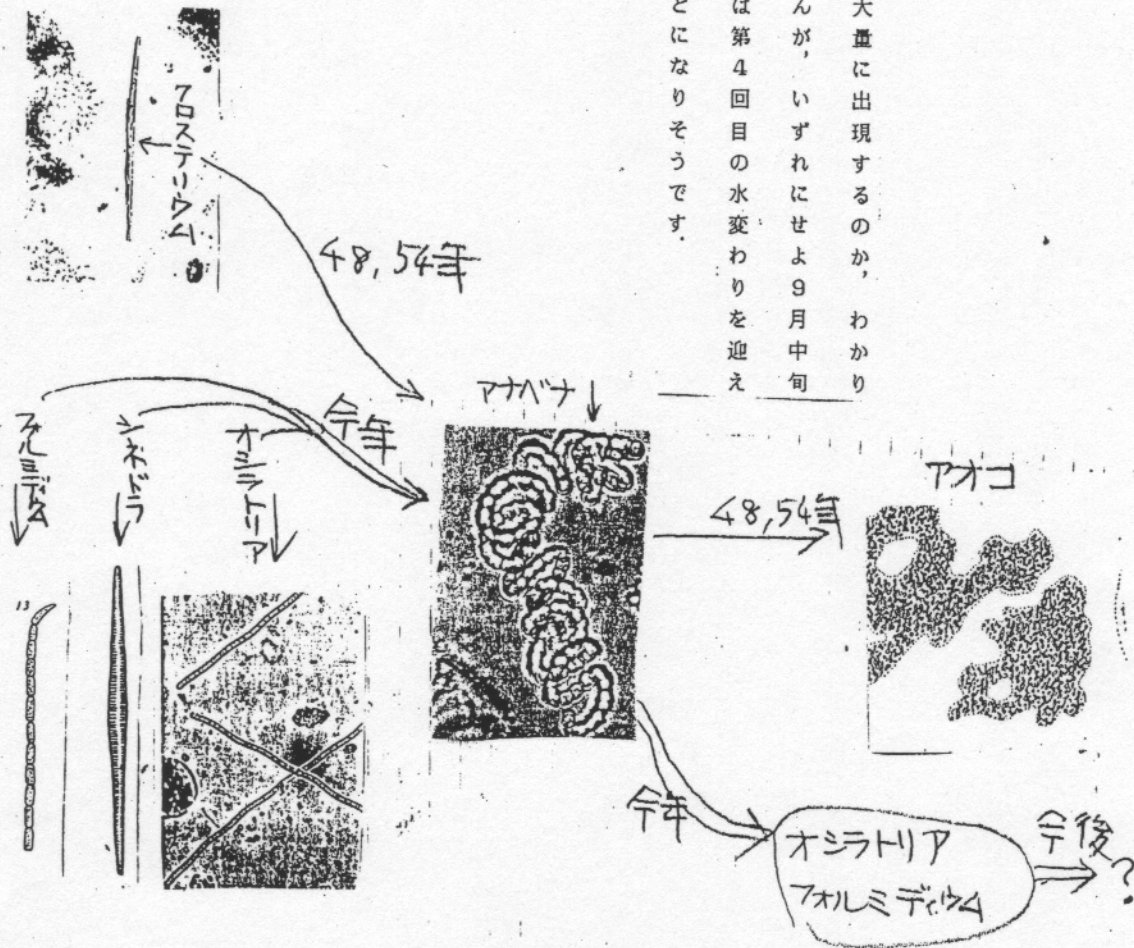 大量に出現するのか，わかり
んが，いずれにせよ9月中旬
は第4回目の水変わりを迎え
とになりそうです．
クロステリウム
48,54年
フォルミディウム
シネドラ
オシラトリア
今年
アナベナ
48,54年
アオコ
13
今年
オシラトリア
フォルミディウム
今後
?